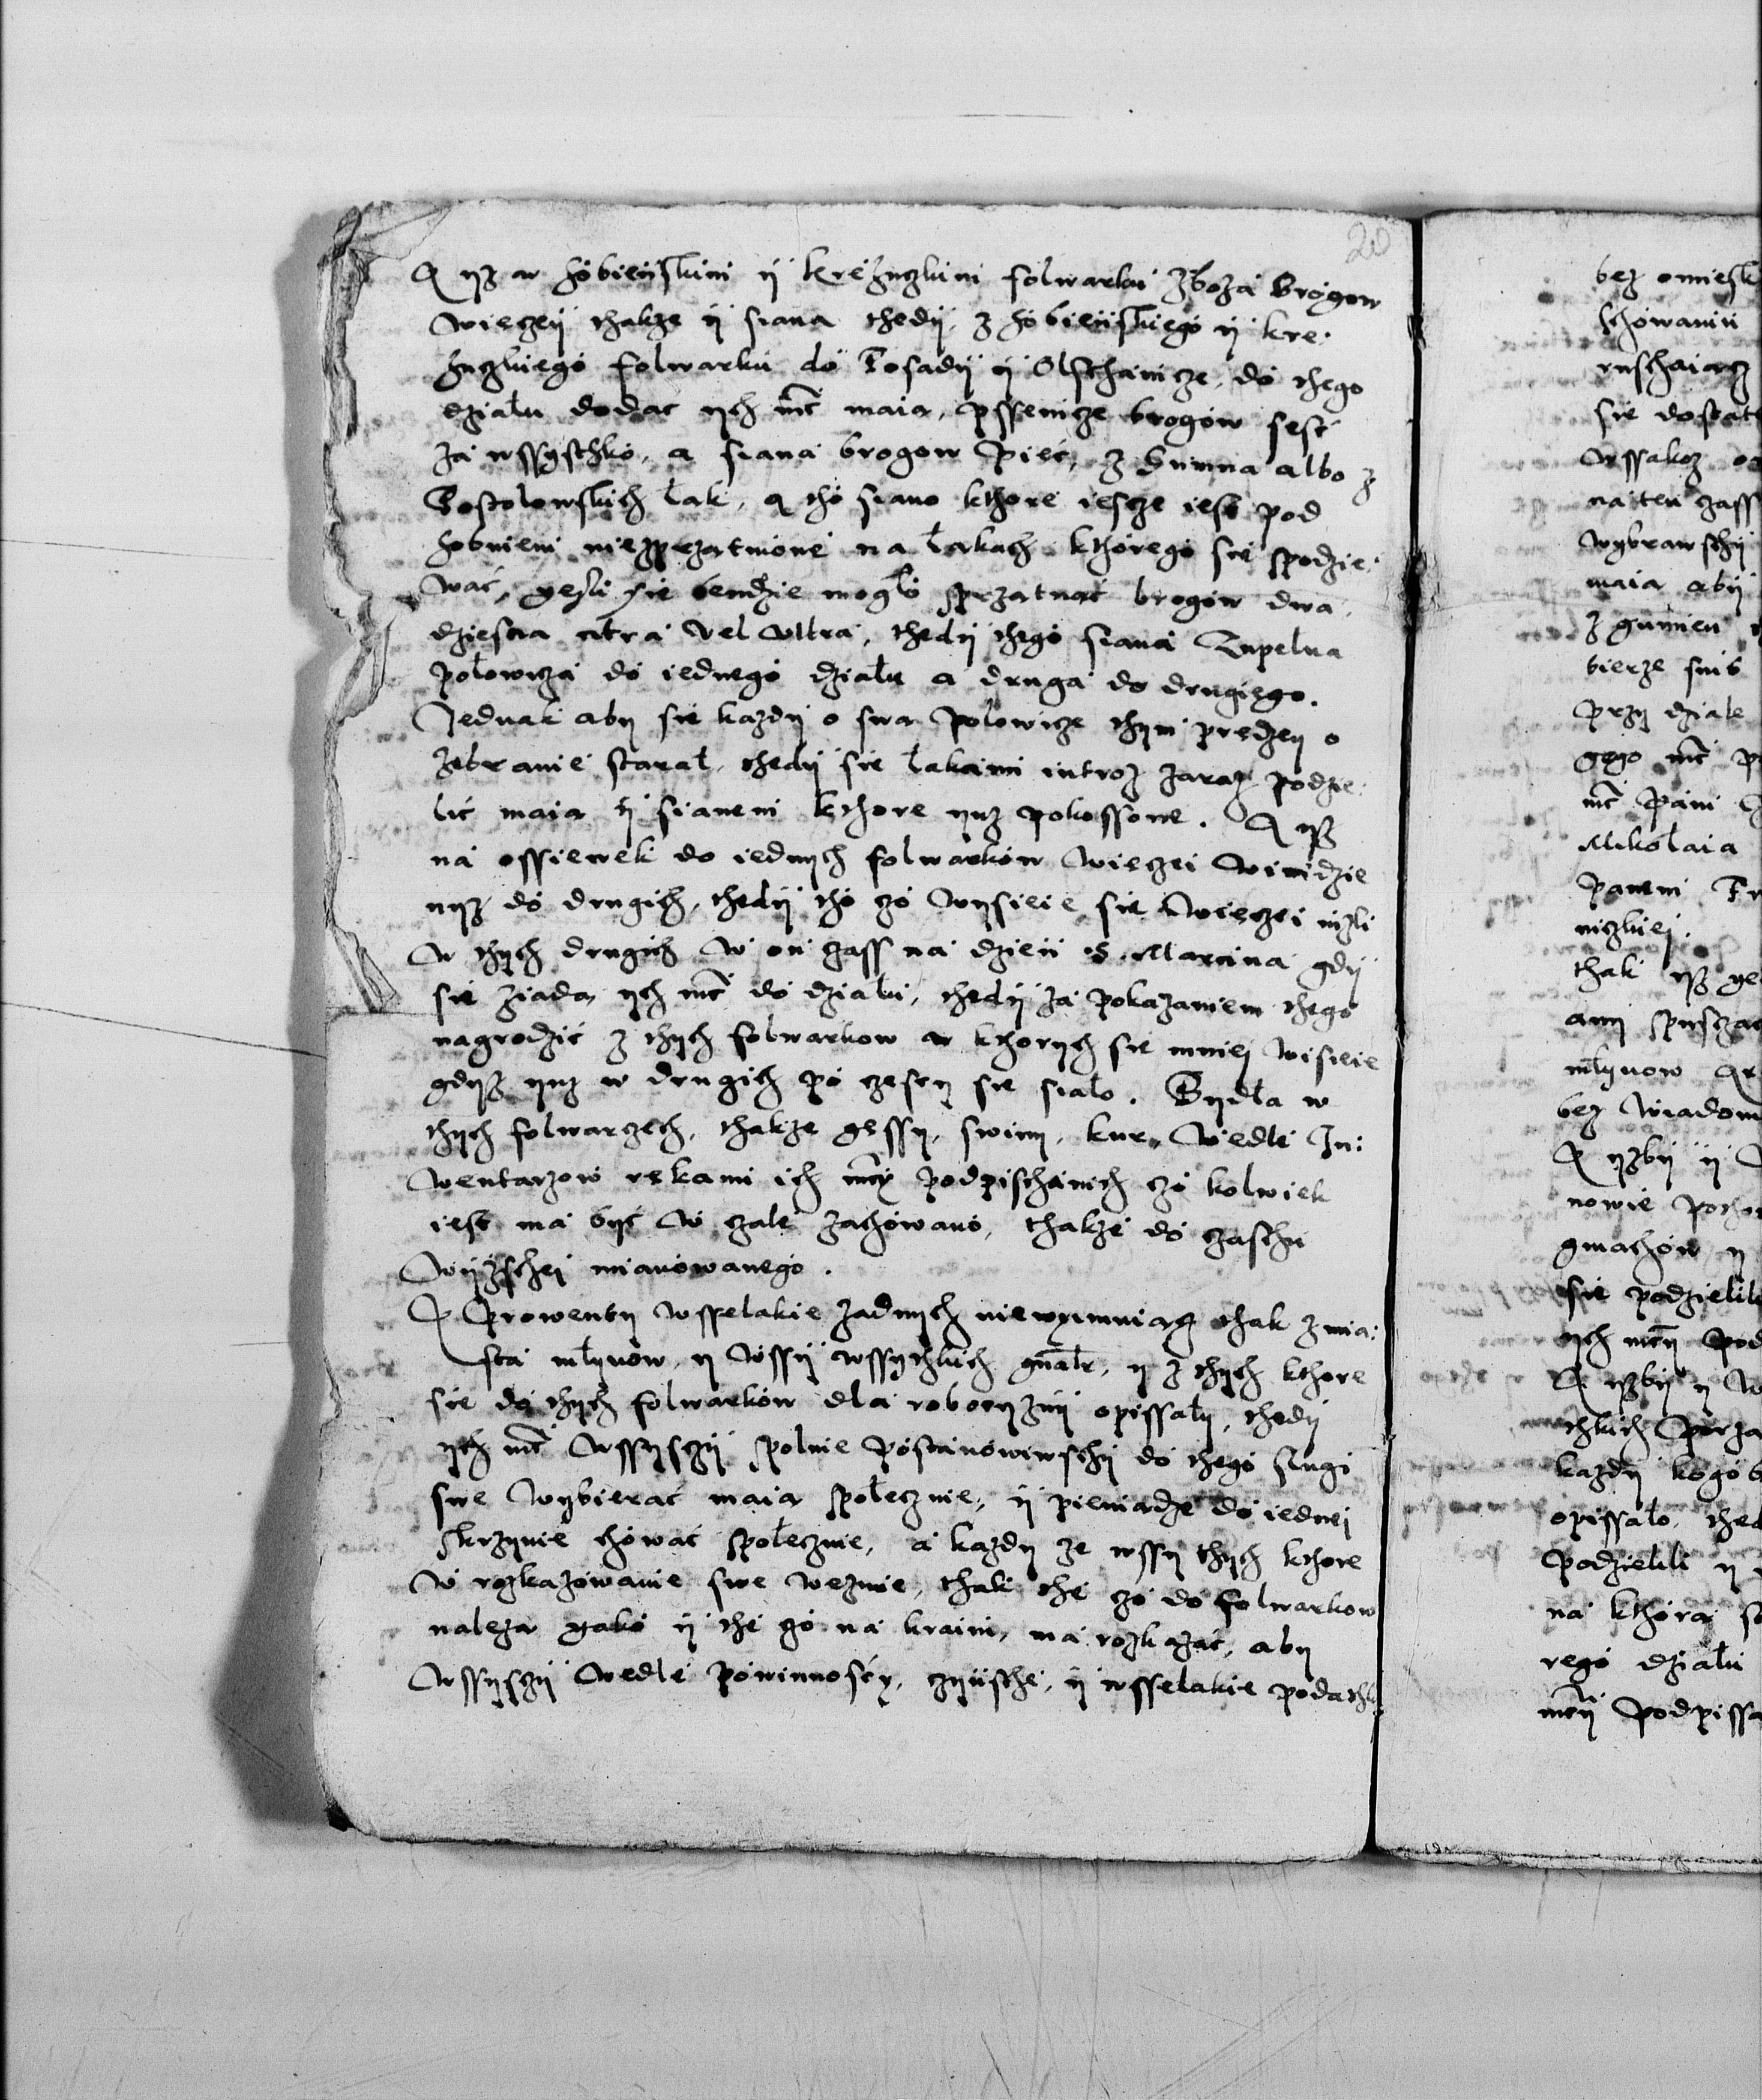 20
A yz w hobieńskim ÿ krężnczkim folwarku zboża brogow
więczeÿ thakze ÿ siana thedÿ, z hobieńskiego ÿ kre:
znczkiego folwarku do Posadÿ ÿ Olschanicze, do thego
działu dodać ych mcz maia, pssenicze brogów sesć
za wssystkko, a siana brogow pieć, z Gumna albo z
Postolowskich łak, a tho siano kthore iescze iest pod
hobniem niezprzatnione na łakach kthorego sie spodzie:
wać, yesli sie bendzie mogło sprzatnać brogów dwa
dziescia citra vel ultra, thedÿ thego siana zupelna
połowicza do iednego działu a druga do drugiego.
Jednak aby sie kazdÿ o swa połowicze thym prędzeÿ o
zebranie starał, thedÿ sie łakami introz zaraz podzie:
lić maia ÿ sianem kthore yuz pokossone. A ysz
na ossiewek do iednych folwarków wieczei winidzie
nysz do drugich, thedÿ tho czo wysieie sie wieczei nizli
w thych drugich w on czass na dzień S. Marcina gdÿ
sie ziada ych mcz do działu, thedÿ za pokazaniem thego
nagrodzić z thych folwarkow w kthorych sie mniej wisieie
gdysz yuz w drugich po czesci sie siało. Bydła w
thych folwarczech, thakze gessy, swiny, kur, wiedle In:
wentarzow rękami ich mczy podpischanich czo kolwiek
iest ma być w czale zachowano, thakze do czaschu
wÿzschej mianowanego.
A Prowentÿ wsselakie zadnych niewymuiącz thak z mia:
sta młynow, y wssÿ wssythkich gnalr, y z thych kthore
sie do thych folwarków dla roboczyznÿ opissały, thedÿ
ych mcz wssysczÿ spolnie postanowiwschÿ do thego slugi
swe wybierać maia społecznie, ÿ pieniadze do iednej
skrzynie chować społecznie, a kazdy ze wssy thych kthore
w rozkazowanie swe wezmie, thak the czo do folwarkow
naleza yako ÿ the czo na kraini, ma rozkazać, aby
wssysczÿ wedle powinnosczy, czynsche, ÿ wsselakie podathk
bez omiesk
schowaniu
ruschaiacz
sie dostat
wssakcz
na ten czass
wybrawschÿ
maia abÿ
z gumien
bierze
przy dziale
gego mcz
mcz pani
Mikolaia
panem Fr
niczkiej.
thak ysz
any spuscza
młynow
bez wiadom
A yzbÿ ÿ
nowie
gmachów y
sie podzielili
ych mczy pod
A yzbÿ y
thkich
kazdÿ kogo
opissało, thed
podzielili y
na kthora
rego działu
mczy podpissa